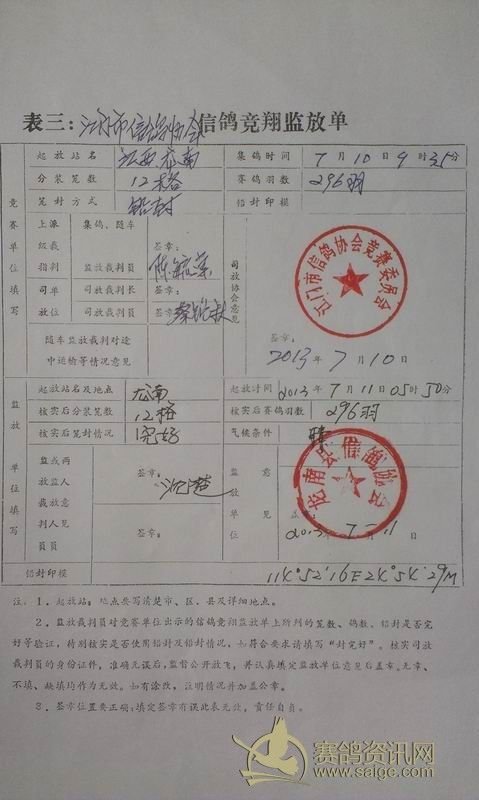 表三：江门市信鸽协会信鸽竞翔监放单
起放站名 江西龙南 集鸽时间 7月10日9时35分
分装笼数 12格 赛鸽羽数 296羽
笼封方式 铅封 铅封印模
竞赛单位填写
上派 集鸽、随车 签章：
级裁
指判 监放裁判员
司单 司放裁判长 签章：
放位 司放裁判员 签章：
司放协会意见
江门市信鸽协会竞赛委员会
签章：
2013年7月10日
随车监放裁判对途
中运输等情况意见
监放单位填写
起放站名及地点 龙南 起放时间 2013年7月11日05时50分
核实后分装笼数 12格 核实后赛鸽羽数 296羽
核实后笼封情况 完好 气候条件 晴
监或两
放监人
裁放意
判人见
员员
签章：
签章：
监放单位意见
龙南县信鸽协会
2013年7月11日
铅封印模 114°52'16E24°54'29N
注：1、起放站：地点要写清楚市、区、县及详细地点。
2、监放裁判员对竞赛单位出示的信鸽竞翔监放单上所列的笼数、鸽数、铅封是否完
好等验证，特别核实是否使用铅封及铅封情况，如符合要求请填写“封完好”。核实司放
裁判员的身份证件，准确无误后，监督公开放飞，并认真填定监放单位意见后盖章。无章、
不填、缺填均作为无效。如有涂改，注明情况并加盖公章。
3、签章位置要正确；填定签章有误此表无效，责任自负。
赛鸽资讯网
www.saigc.com